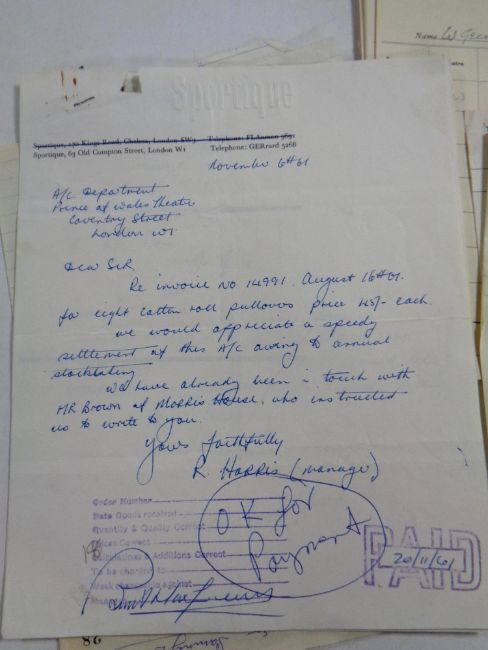 Name W Gee
Sportique
Sportique, 170 Kings Road, Chelsea, London SW3 Telephone: FLAxman 5691
Sportique, 63 Old Compton Street, London W1 Telephone: GERrard 5268
November 6th 61
A/C Department
Prince of Wales Theatre
Coventry Street
London W1
Dear Sir
Re invoice No 14991. August 16th 61.
for eight cotton roll pullovers price 45/- each.
we would appreciate a speedy
settlement of this A/C owing to annual
stocktaking
We have already been in touch with
MR Brown of Morris House, who instructed
us to write to you.
Yours faithfully
R. Harris (manager)
Order Number
Date Goods received
Quantity & Quality Correct
Prices Correct
Calculations & Additions Correct
To be charged to
Week chargeable against
Manager
OK for
Payment
PAID
20/11/61